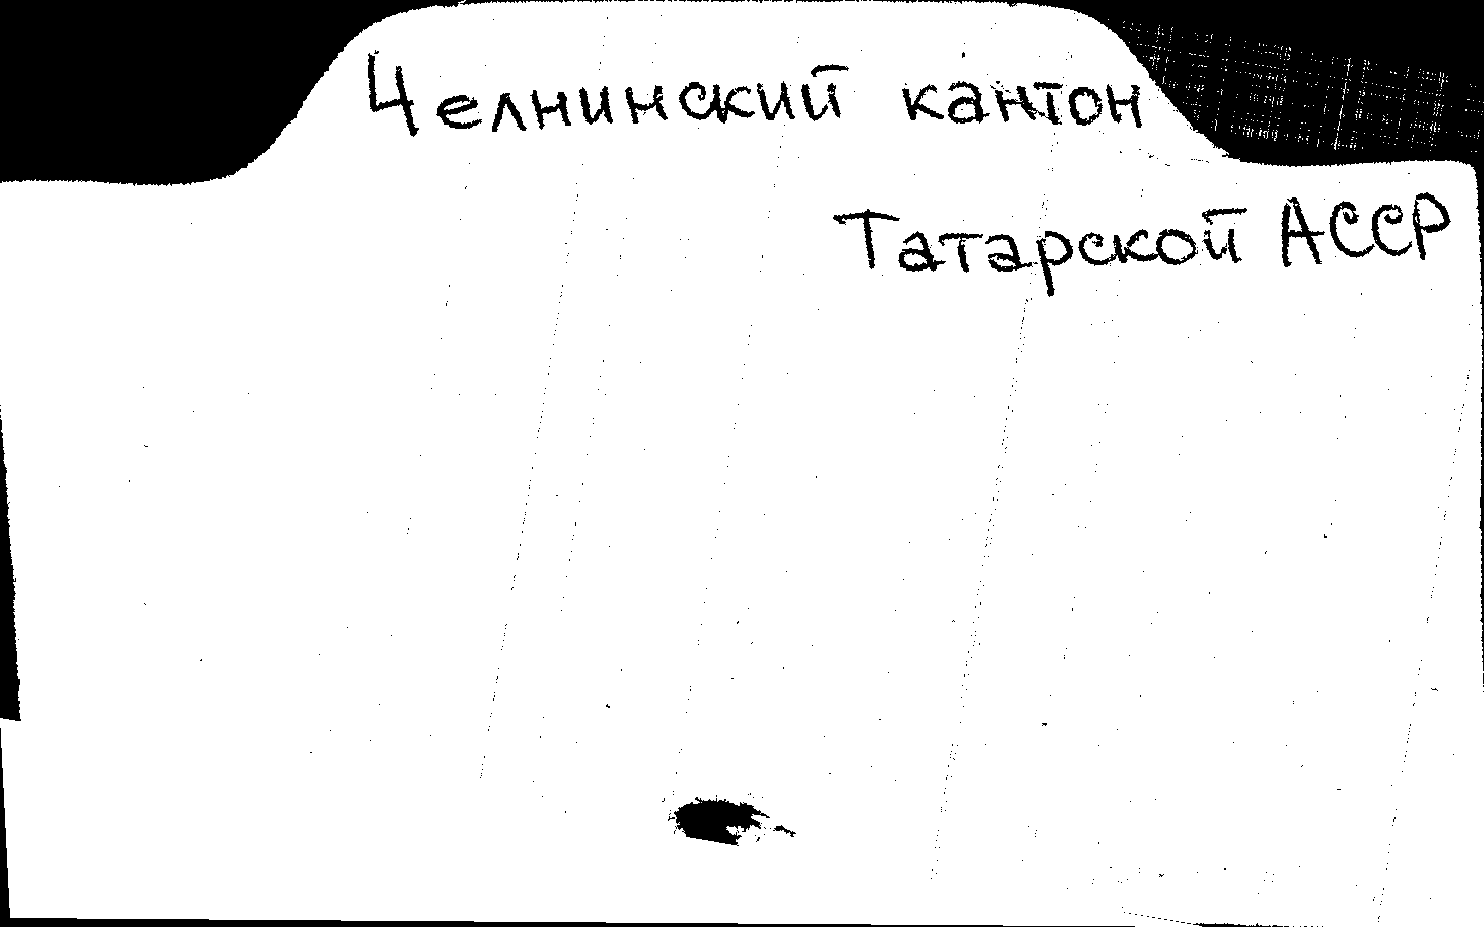 Челнинский кантон
Татарской АССР